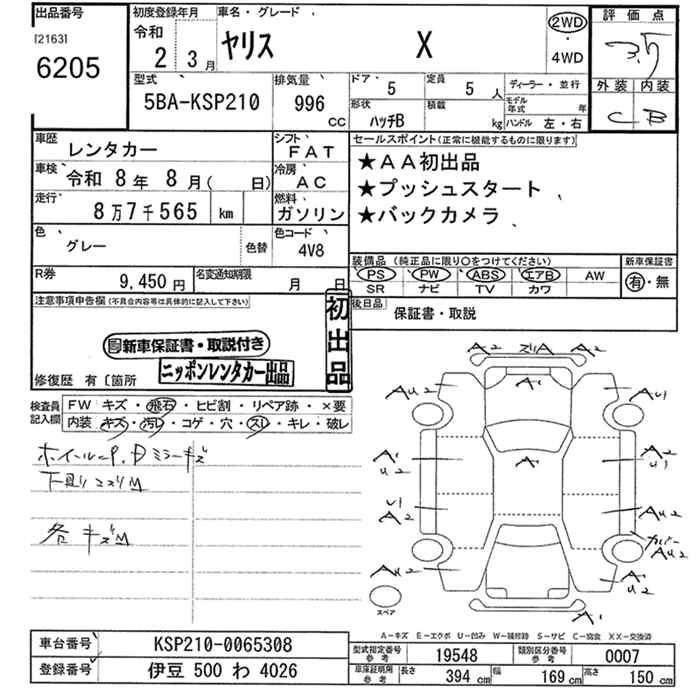 出品番号
[2163]
6205
初度登録年月
令和
2 3月
車名・グレード
ヤリス X
2WD
・
4WD
評価点
3.5
外装 内装
C B
型式
5BA-KSP210
排気量
996
CC
ドア・ 5
定員 5 人
ディーラー・並行
形状
ハッチB
積載
kg
モデル年式 年
ハンドル 左・右
車歴
レンタカー
シフト
FAT
車検 令和 8年 8月( 日)
冷房
AC
走行
8万7千565 km
燃料
ガソリン
色
グレー
色替
色コード
4V8
セールスポイント(正常に機能するものに限ります)
★AA初出品
★プッシュスタート
★バックカメラ
装備品 (純正品に限り○をつけてください)
PS PW ABS エアB AW
SR ナビ TV カワ
新車保証書
有・無
R券
9,450円
名変通知期限
月 日
後日品
保証書・取説
注意事項申告欄(不具合内容等は具体的に記入して下さい)
初出品
新車保証書・取説付き
ニッポンレンタカー出品
修復歴 有〔箇所
検査員記入欄
FW キズ・飛石・ヒビ割・リペア跡・×要
内装 キズ・汚レ・コゲ・穴・スレ・キレ・破レ
下廻りコスリM
各キズM
A2 スリA A2
AU2 A' AU1
A' U2 A' A2 U1
U1 A2 AU2
カバー AU2
AU2 A' U2
A'
スペア
A-キズ E-エクボ U-凹み W-補修跡 S-サビ C-腐食 XX-交換済
車台番号 KSP210-0065308
登録番号 伊豆 500 わ 4026
型式指定番号 参考 19548
類別区分番号 参考 0007
車庫証明用 参考 長さ 394 cm 幅 169 cm 高さ 150 cm